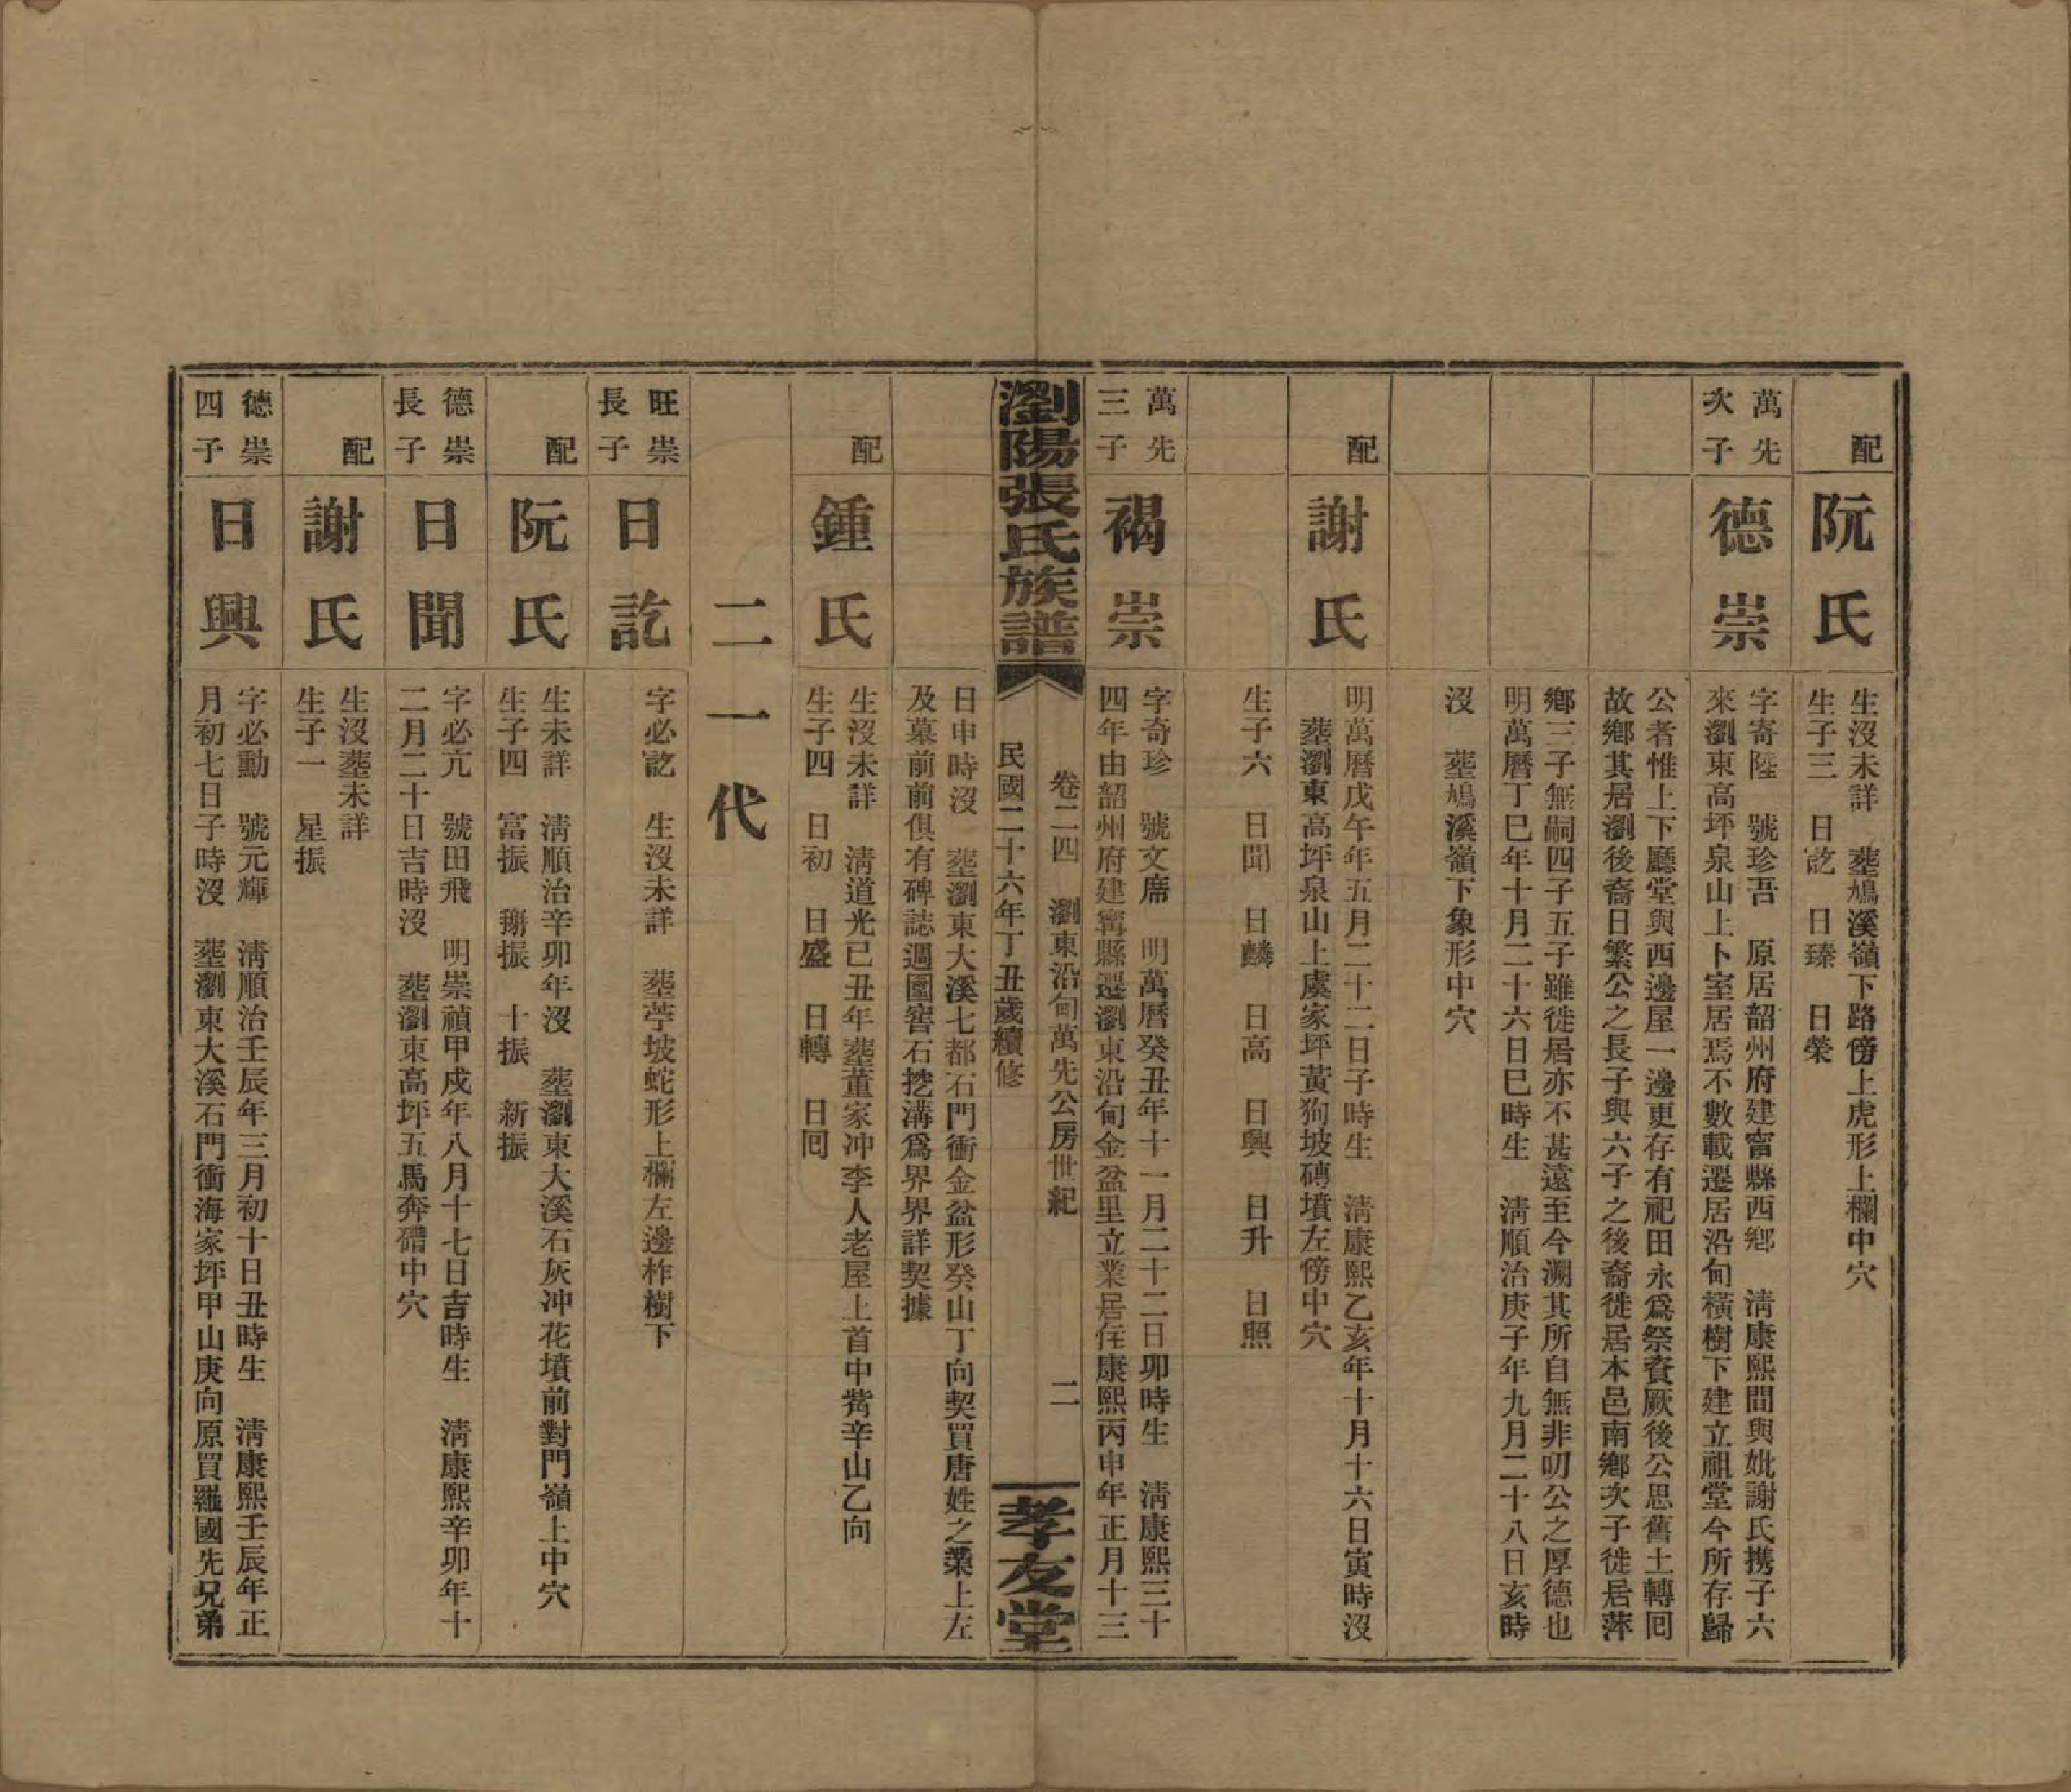 配
阮氏
生沒未詳　塟鳩溪嶺下路傍上虎形上欄中穴
生子三　日訖　日臻　日榮
萬先
次子
德崇
字寄陞　號珍吾　原居韶州府建甯縣西鄉　淸康熙間與妣謝氏携子六
來瀏東高坪泉山上卜室居焉不數載遷居沿甸橫樹下建立祖堂今所存歸
公者惟上下廳堂與西邊屋一邊更存有祀田永爲祭資厥後公思舊土轉囘
故鄉其居瀏後裔日繁公之長子與六子之後裔徙居本邑南鄉次子徙居萍
鄉三子無嗣四子五子雖徙居亦不甚遠至今溯其所自無非叨公之厚德也
明萬曆丁巳年十月二十六日巳時生　淸順治庚子年九月二十八日亥時
沒　塟鳩溪嶺下象形中穴
配
謝氏
明萬曆戊午年五月二十二日子時生　淸康熙乙亥年十月十六日寅時沒
塟瀏東高坪泉山上虞家坪黃狗坡磚墳左傍中穴
生子六　日聞　日麟　日高　日興　日升　日照
萬先
三子
褐崇
字奇珍　號文席　明萬曆癸丑年十一月二十二日卯時生　淸康熙三十
四年由韶州府建甯縣遷瀏東沿甸金盆里立業居住康熙丙申年正月十三
瀏陽張氏族譜
卷二四　瀏東沿甸萬先公房世紀　二
民國二十六年丁丑歲續修
孝友堂
日申時沒　塟瀏東大溪七都石門衝金盆形癸山丁向契買唐姓之業上左
及墓前前俱有碑誌週圍窖石挖溝爲界界詳契據
配
鍾氏
生沒未詳　淸道光已丑年塟董家冲李人老屋上首中觜辛山乙向
生子四　日初　日盛　日轉　日囘
二一代
旺崇
長子
日訖
字必訖　生沒未詳　塟苧坡蛇形上欄左邊柞樹下
配
阮氏
生未詳　淸順治辛卯年沒　塟瀏東大溪石灰冲花墳前對門嶺上中穴
生子四　富振　搿振　十振　新振
德崇
長子
日聞
字必亢　號田飛　明崇禎甲戍年八月十七日吉時生　淸康熙辛卯年十
二月二十日吉時沒　塟瀏東高坪五馬奔磳中穴
配
謝氏
生沒塟未詳
生子一　星振
德崇
四子
日興
字必勳　號元輝　淸順治壬辰年三月初十日丑時生　淸康熙壬辰年正
月初七日子時沒　塟瀏東大溪石門衝海家坪甲山庚向原買羅國先兄弟